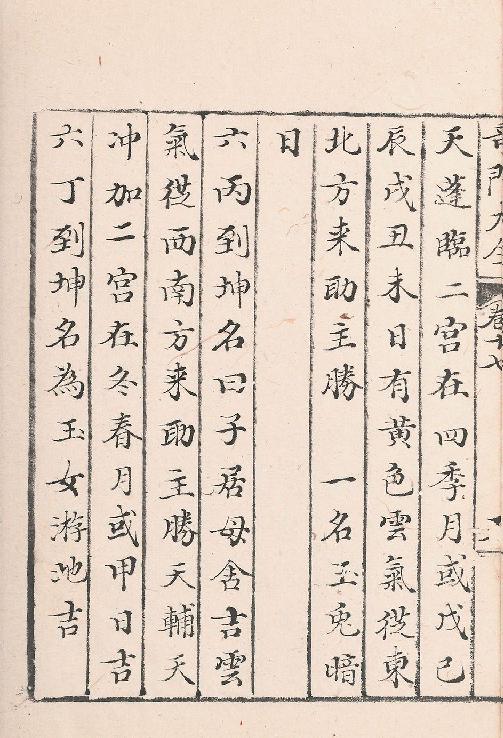 奇門大全
卷十七
天蓬臨二宮在四季月或戊己
辰戌丑未日有黃色雲氣從東
北方来助主勝　一名玉兎暗
日
六丙到坤名曰子居母舍吉雲
氣從西南方来助主勝天輔天
冲加二宮在冬春月或甲日吉
六丁到坤名為玉女游地吉